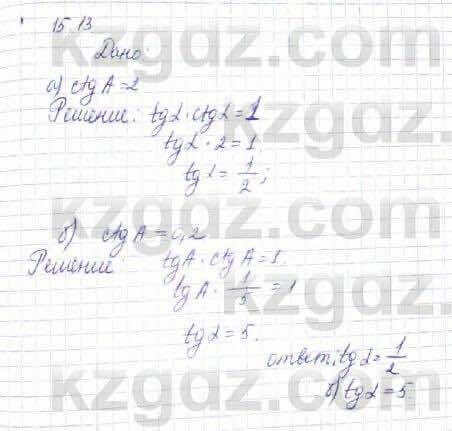 15.13
Дано:
а) ctg A = 2
Решение: tgα · ctgα = 1
tgα · 2 = 1
tgα = 1/2;
б) ctg A = 0,2
Решение tgA · ctgA = 1.
tgA · 1/5 = 1
tgα = 5.
ответ: tgα = 1/2
б) tgα = 5
kzgdz.com
kzgdz.com
kzgdz.com
kzgdz.com